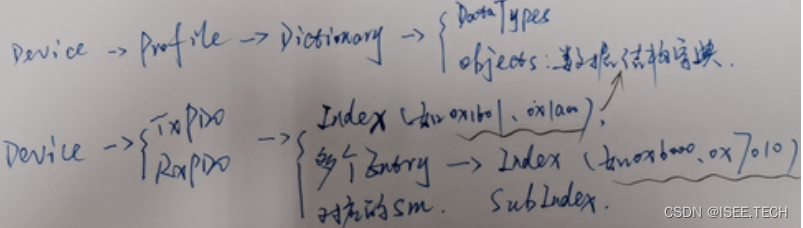 Device → Profile → Dictionary → { DataTypes
objects: 数据结构字典.
Device → { TxPDO → { Index (如0x1601、0x1a00).
RxPDO 多个Entry → Index (如0x6000、0x7010)
对应的SM. SubIndex.
CSDN @ISEE.TECH